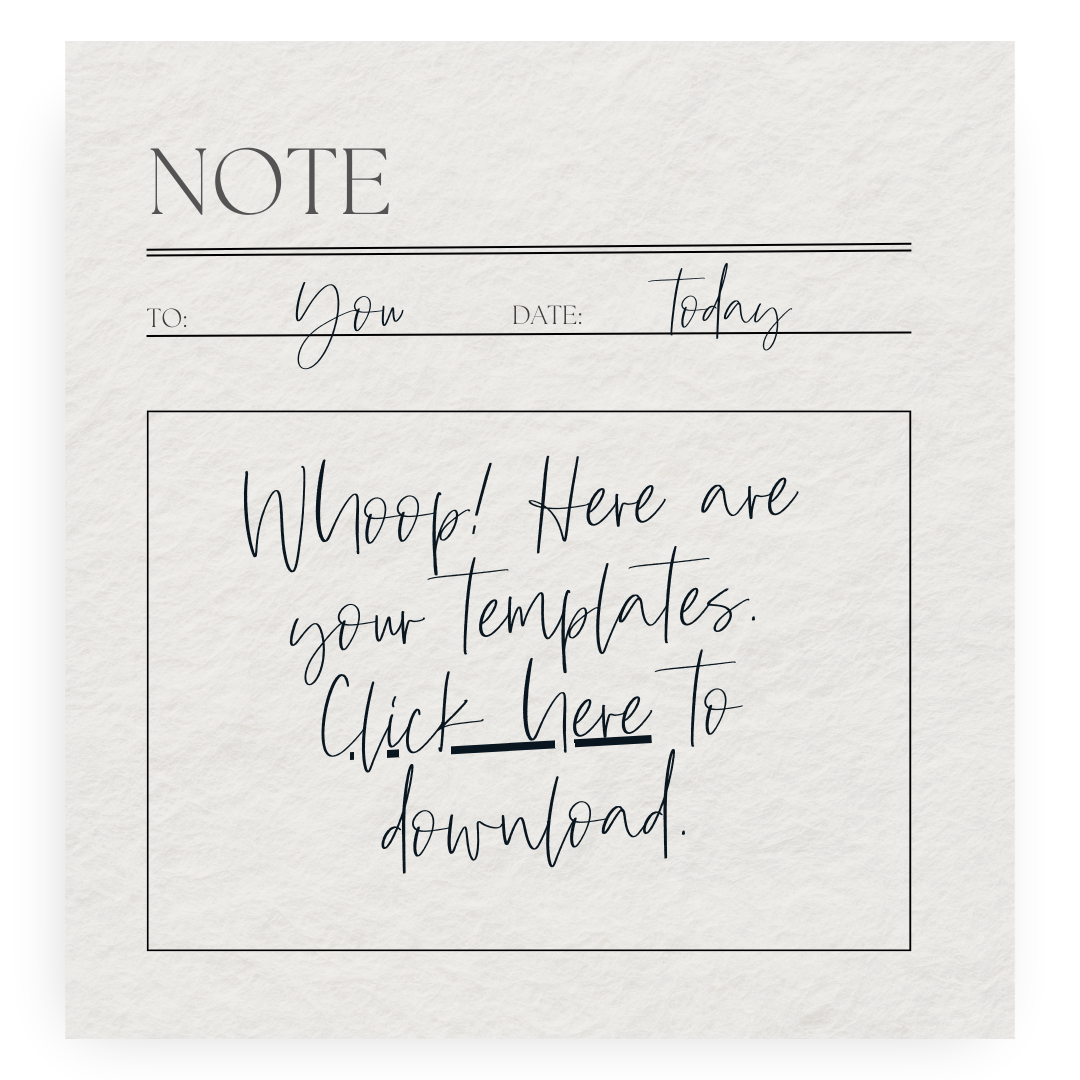 NOTE
TO: You DATE: today
Whoop! Here are
your templates.
Click here to
download.